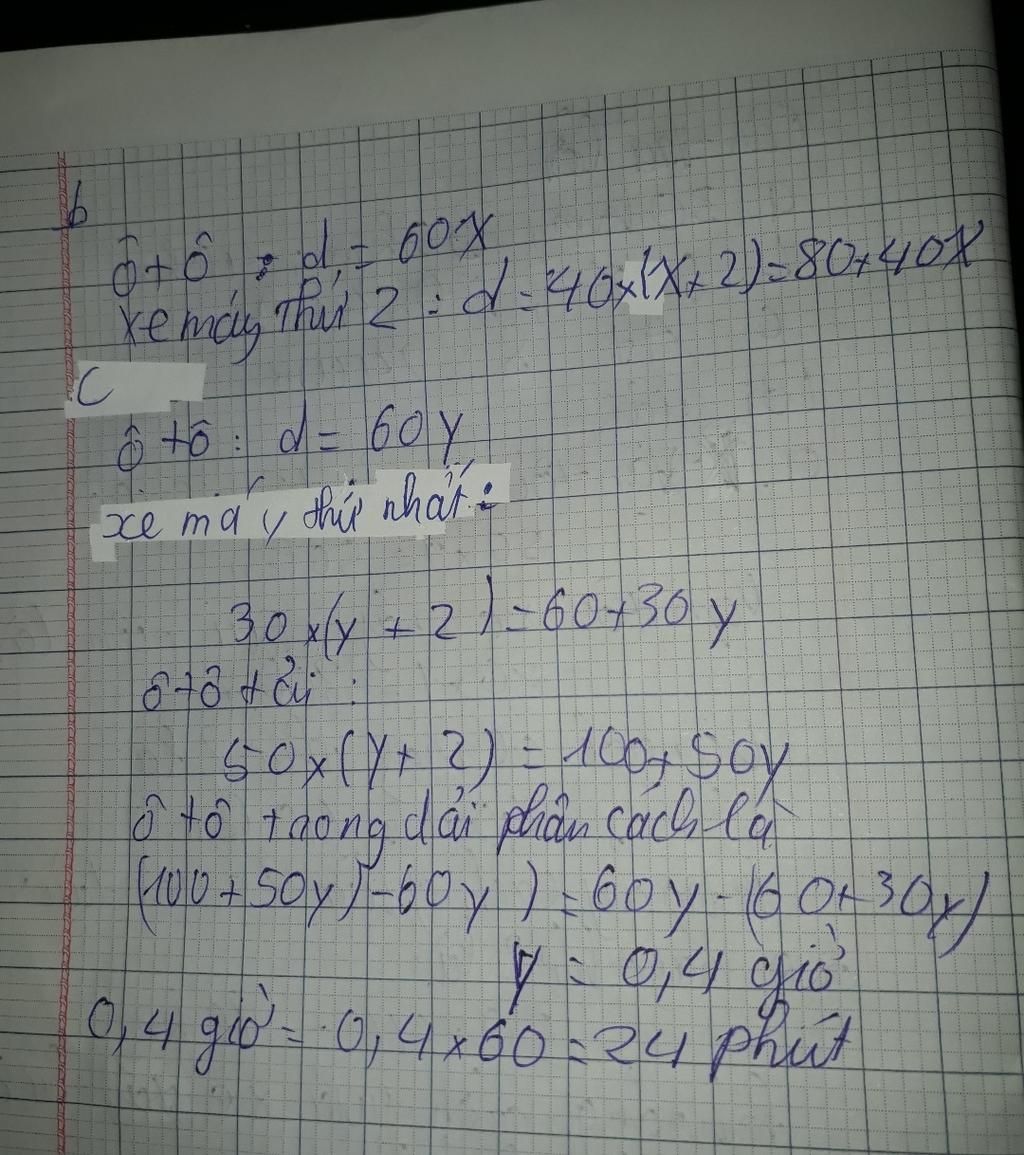 b
ô tô : d = 60x
xe máy thứ 2 : d = 40×(x+2)=80+40x
C
ô tô : d = 60y
xe máy thứ nhất :
30×(y + 2) = 60+30y
ô tô tải :
50×(y+ 2) = 100+50y
ô tô trong dải phân cách là
(100+50y)-60y) = 60y-(60+30y)
y = 0,4 giờ
0,4 giờ = 0,4×60 = 24 phút